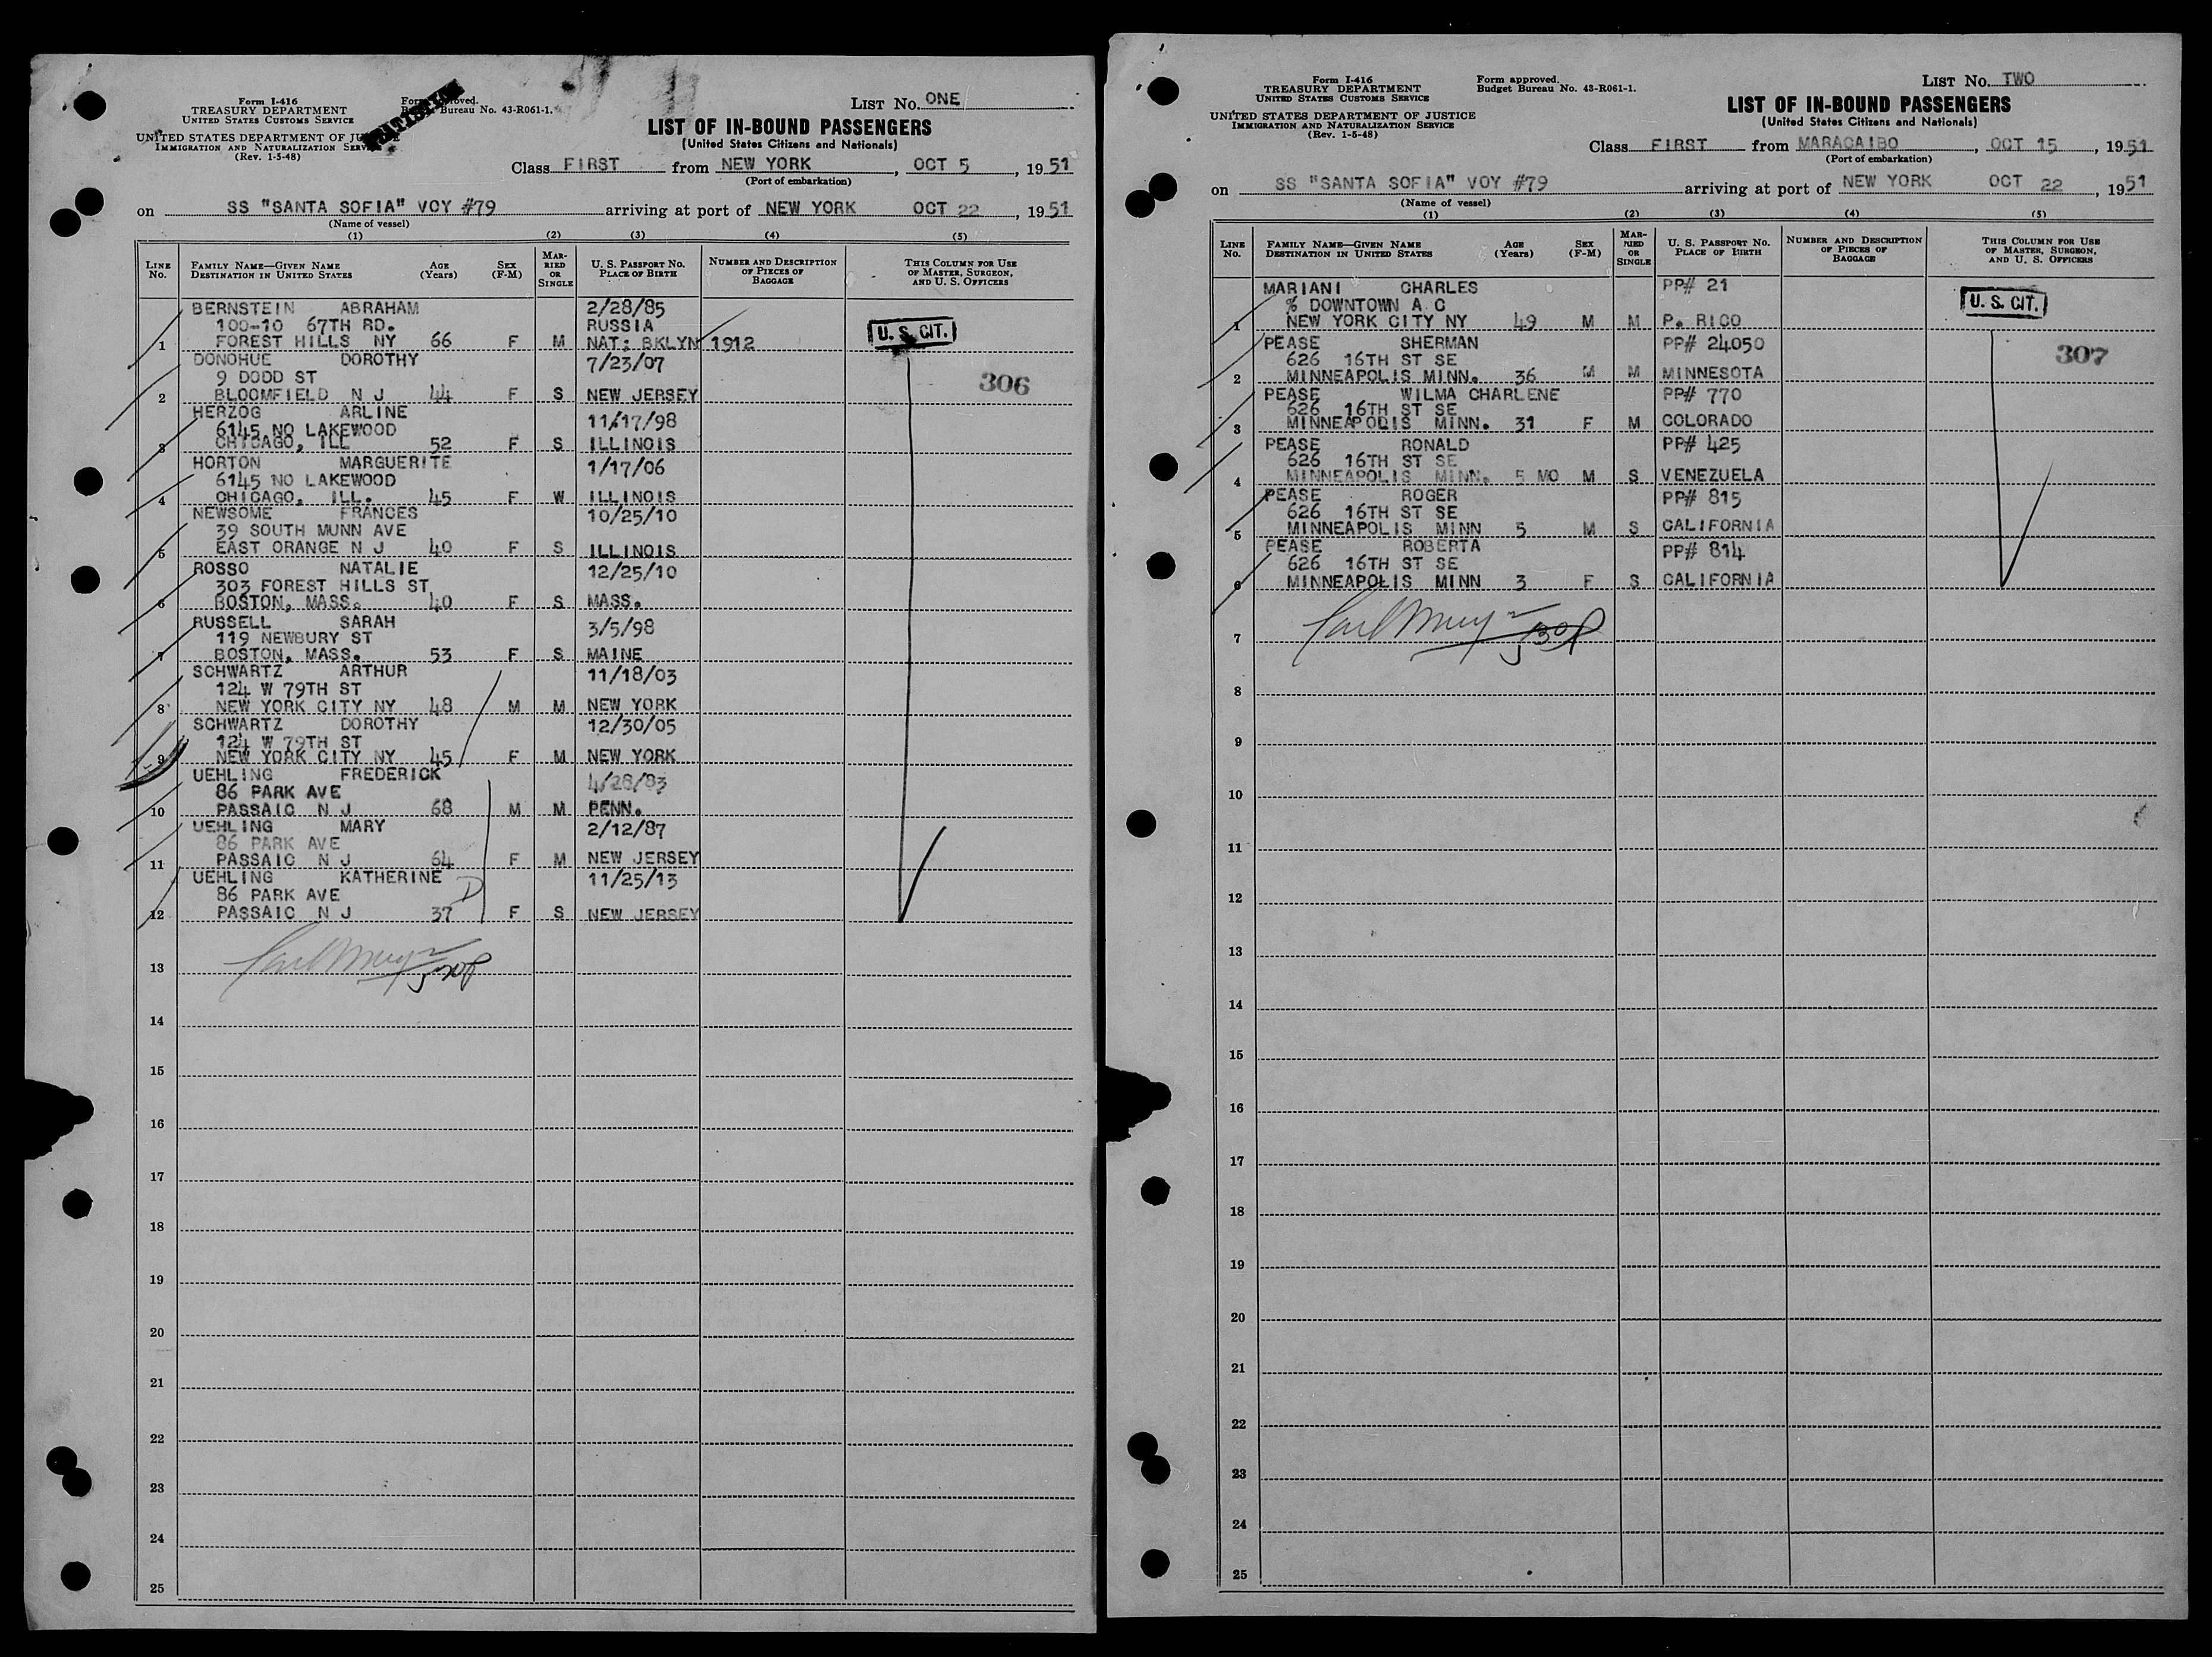 Form I-416
TREASURY DEPARTMENT
UNITED STATES CUSTOMS SERVICE
UNITED STATES DEPARTMENT OF JUSTICE
IMMIGRATION AND NATURALIZATION SERVICE
(Rev. 1-5-48)
Form approved.
Budget Bureau No. 43-R061-1.
LIST No. ONE
LIST OF IN-BOUND PASSENGERS
(United States Citizens and Nationals)
Class FIRST from NEW YORK, OCT 5, 1951
(Port of embarkation)
on SS "SANTA SOFIA" VOY #79 arriving at port of NEW YORK OCT 22, 1951
(Name of vessel)
(1) (2) (3) (4) (5)
LINE No. FAMILY NAME—GIVEN NAME DESTINATION IN UNITED STATES AGE (Years) SEX (F-M) MARRIED OR SINGLE U. S. PASSPORT No. PLACE OF BIRTH NUMBER AND DESCRIPTION OF PIECES OF BAGGAGE THIS COLUMN FOR USE OF MASTER, SURGEON, AND U. S. OFFICERS
BERNSTEIN ABRAHAM 2/28/85
100-10 67TH RD. RUSSIA
1 FOREST HILLS NY 66 F M NAT: BKLYN 1912
U. S. CIT.
DONOHUE DOROTHY 7/23/07
9 DODD ST
306
2 BLOOMFIELD N J 44 F S NEW JERSEY
HERZOG ARLINE 11/17/98
6145 NO LAKEWOOD
3 CHICAGO, ILL 52 F S ILLINOIS
HORTON MARGUERITE 1/17/06
6145 NO LAKEWOOD
4 CHICAGO, ILL. 45 F W ILLINOIS
NEWSOME FRANCES 10/25/10
39 SOUTH MUNN AVE
5 EAST ORANGE N J 40 F S ILLINOIS
ROSSO NATALIE 12/25/10
303 FOREST HILLS ST
6 BOSTON, MASS. 40 F S MASS.
RUSSELL SARAH 3/5/98
119 NEWBURY ST
7 BOSTON, MASS. 53 F S MAINE
SCHWARTZ ARTHUR 11/18/03
124 W 79TH ST
8 NEW YORK CITY NY 48 M M NEW YORK
SCHWARTZ DOROTHY 12/30/05
124 W 79TH ST
9 NEW YORK CITY NY 45 F M NEW YORK
UEHLING FREDERICK 4/28/83
86 PARK AVE
10 PASSAIC N J 68 M M PENN.
UEHLING MARY 2/12/87
86 PARK AVE
11 PASSAIC N J 64 F M NEW JERSEY
UEHLING KATHERINE 11/25/13
86 PARK AVE D
12 PASSAIC N J 37 F S NEW JERSEY
13
14
15
16
17
18
19
20
21
22
23
24
25
Form I-416
TREASURY DEPARTMENT
UNITED STATES CUSTOMS SERVICE
UNITED STATES DEPARTMENT OF JUSTICE
IMMIGRATION AND NATURALIZATION SERVICE
(Rev. 1-5-48)
Form approved.
Budget Bureau No. 43-R061-1.
LIST No. TWO
LIST OF IN-BOUND PASSENGERS
(United States Citizens and Nationals)
Class FIRST from MARACAIBO, OCT 15, 1951
(Port of embarkation)
on SS "SANTA SOFIA" VOY #79 arriving at port of NEW YORK OCT 22, 1951
(Name of vessel)
(1) (2) (3) (4) (5)
LINE No. FAMILY NAME—GIVEN NAME DESTINATION IN UNITED STATES AGE (Years) SEX (F-M) MARRIED OR SINGLE U. S. PASSPORT No. PLACE OF BIRTH NUMBER AND DESCRIPTION OF PIECES OF BAGGAGE THIS COLUMN FOR USE OF MASTER, SURGEON, AND U. S. OFFICERS
MARIANI CHARLES PP# 21
% DOWNTOWN A.C
U. S. CIT.
1 NEW YORK CITY NY 49 M M P. RICO
PEASE SHERMAN PP# 24050
626 16TH ST SE
307
2 MINNEAPOLIS MINN. 36 M M MINNESOTA
PEASE WILMA CHARLENE PP# 770
626 16TH ST SE
3 MINNEAPOLIS MINN. 31 F M COLORADO
PEASE RONALD PP# 425
626 16TH ST SE
4 MINNEAPOLIS MINN. 5 MO M S VENEZUELA
PEASE ROGER PP# 815
626 16TH ST SE
5 MINNEAPOLIS MINN 5 M S CALIFORNIA
PEASE ROBERTA PP# 814
626 16TH ST SE
6 MINNEAPOLIS MINN 3 F S CALIFORNIA
7
8
9
10
11
12
13
14
15
16
17
18
19
20
21
22
23
24
25